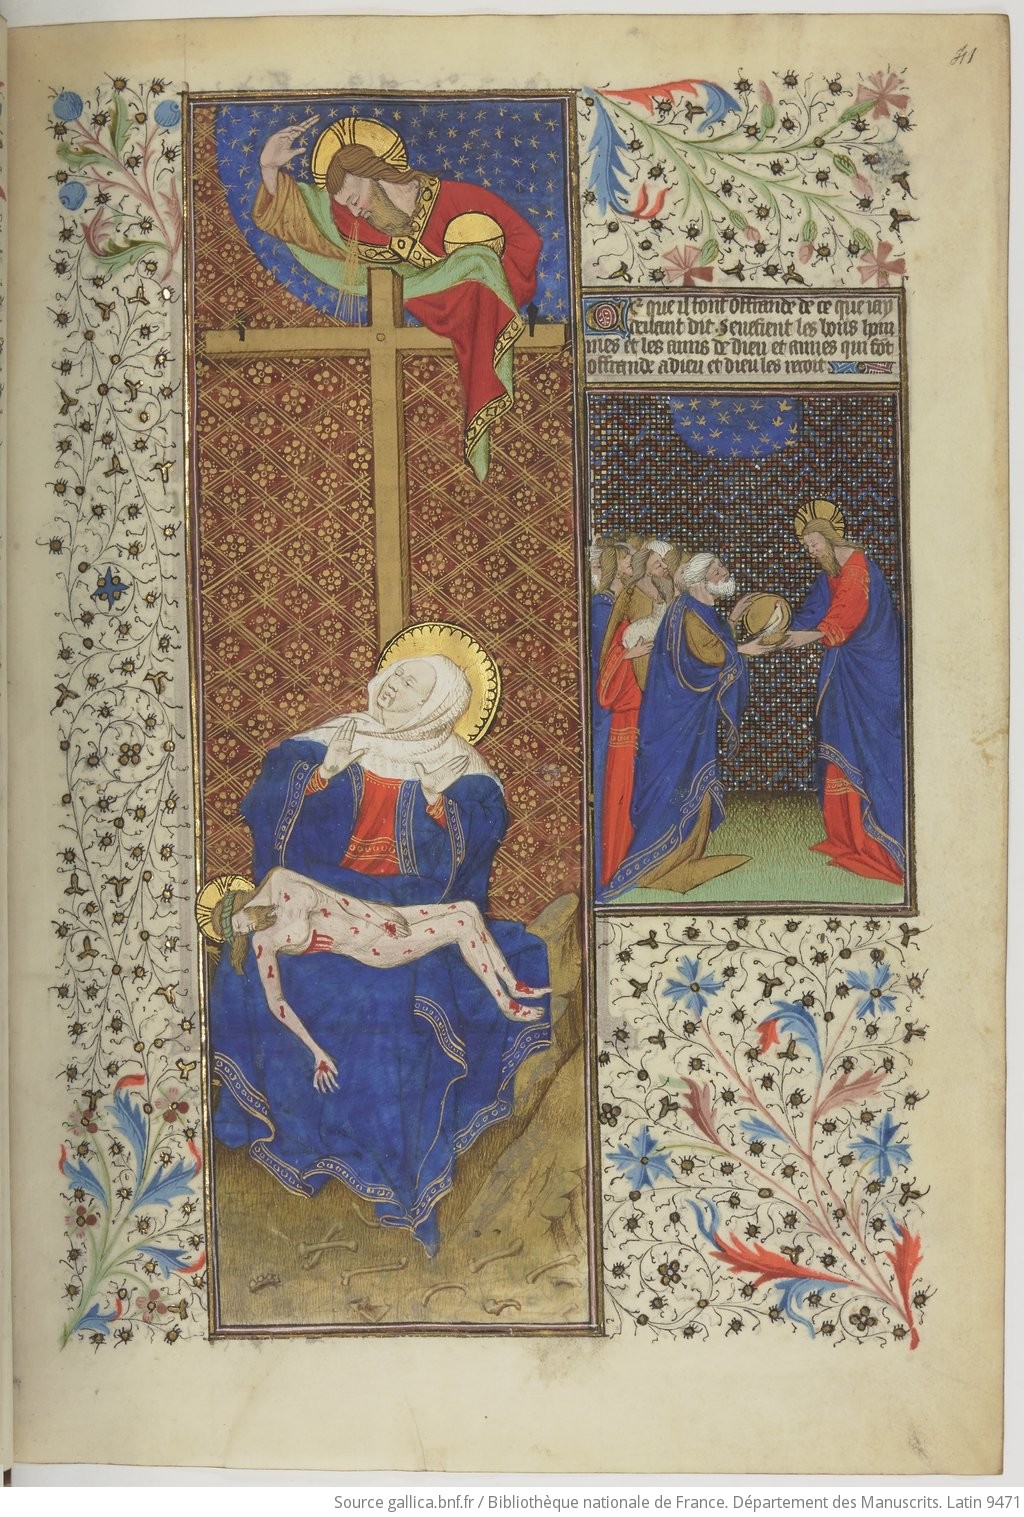 41
Ce que il font offrande de ce que iay
deuant dit Senefient les bons hom
mes et les amis de dieu et amies qui font
offrande a dieu et dieu les recoit
Source gallica.bnf.fr / Bibliothèque nationale de France. Département des Manuscrits. Latin 9471